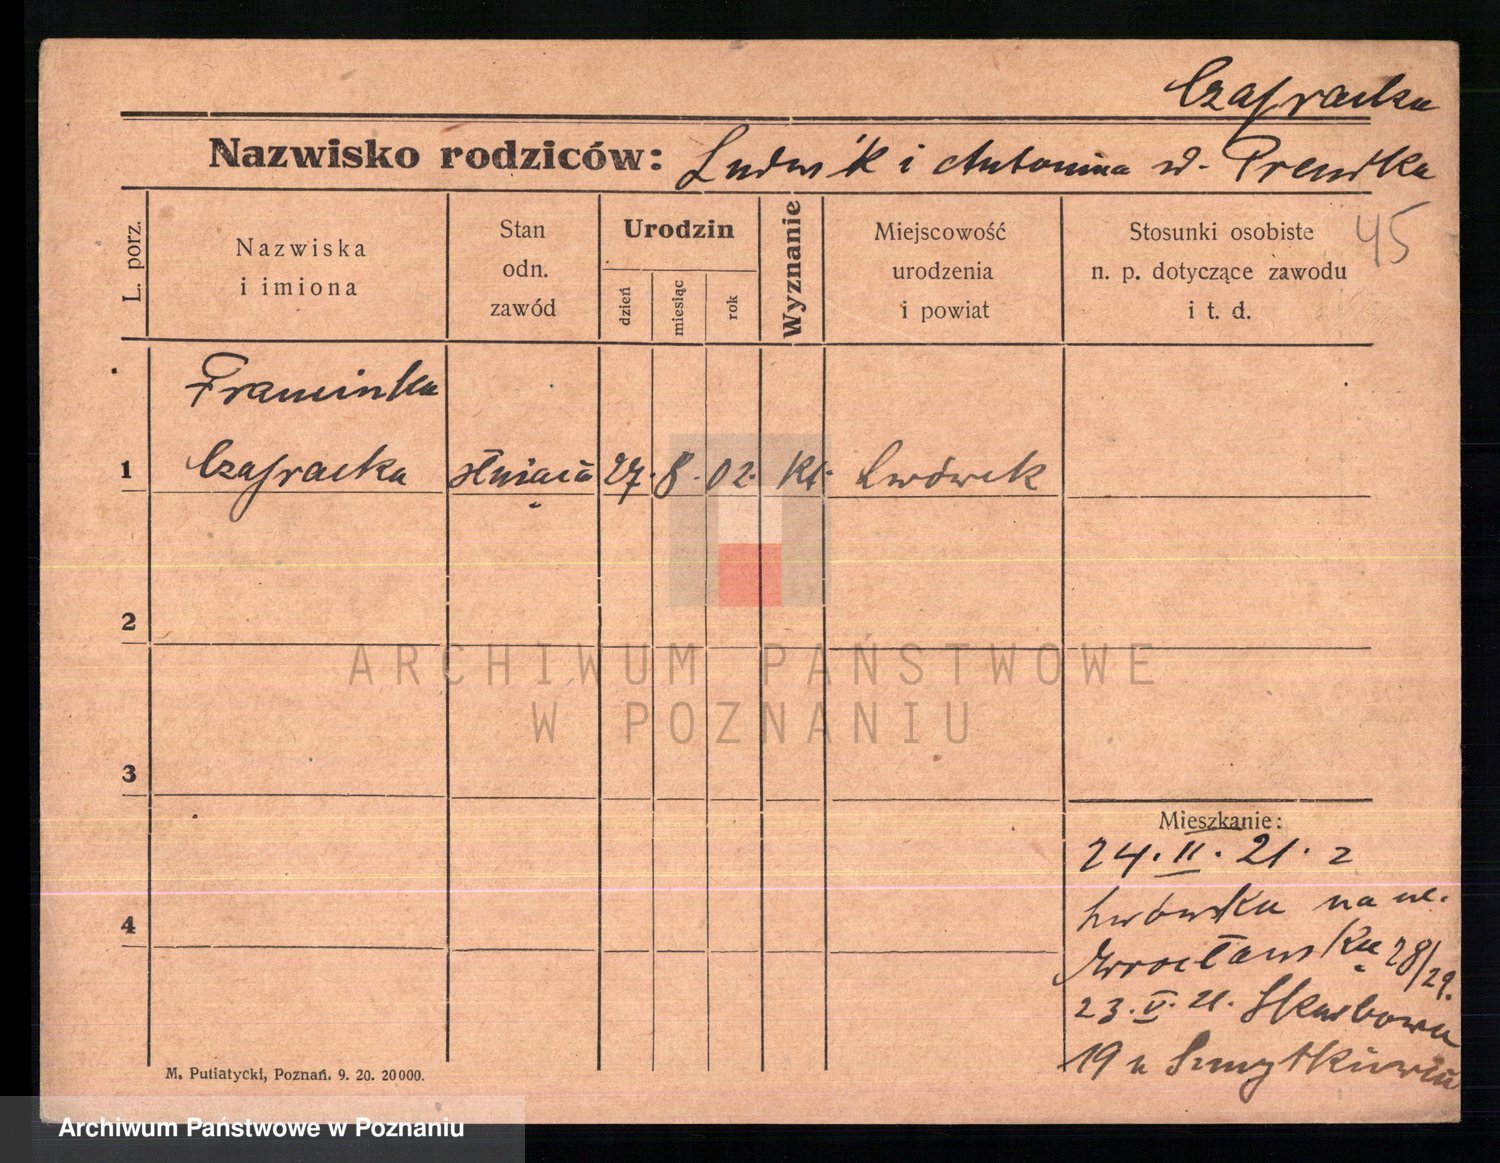 Czajracka
Nazwisko rodziców: Ludwik i Antonina d. Prentka
L. porz.
Nazwiska
i imiona
Stan
odn.
zawód
Urodzin
dzień
miesiąc
rok
Wyznanie
Miejscowość
urodzenia
i powiat
Stosunki osobiste
n. p. dotyczące zawodu
i t. d.
45
Franciszka
1 Czajracka służąca 27. 8. 02. kt. Lwówek
2
3
4
Mieszkanie:
24. II. 21. z
Lwówka na ul.
Wrocławska 28/29.
23. V. 21. Skarbowa
19 u
M. Putiatycki, Poznań. 9. 20. 20000.
ARCHIWUM PAŃSTWOWE
W POZNANIU
Archiwum Państwowe w Poznaniu